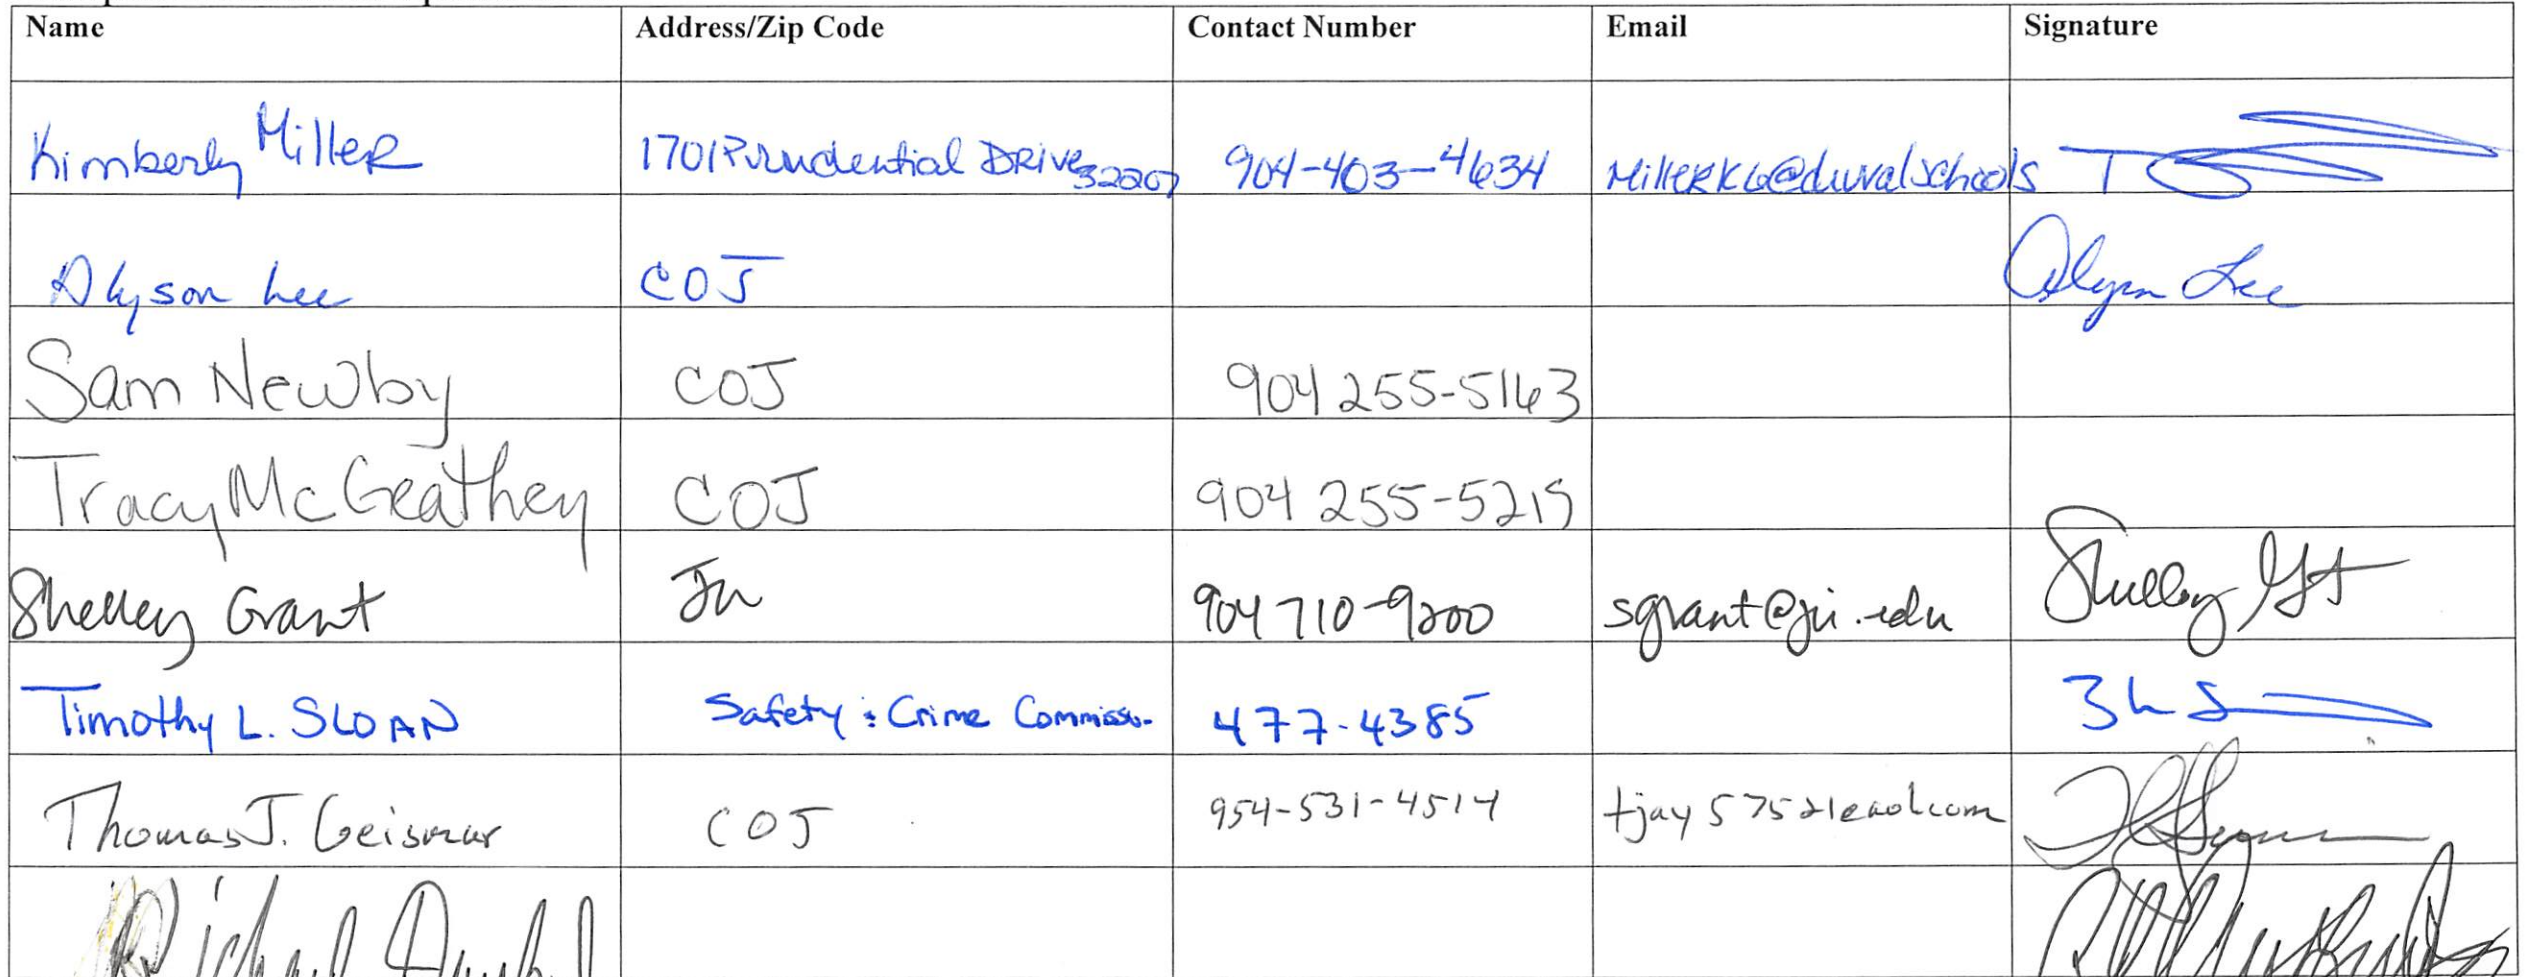 Name Address/Zip Code Contact Number Email Signature
Kimberly Miller 1701 Prudential Drive 32207 904-403-4634 MillerK6@duvalschools
Alyson Lee COJ Alyson Lee
Sam Newby COJ 904 255-5163
Tracy McGeathey COJ 904 255-5219
Shelley Grant JU 904 710-9200 sgrant@ju.edu Shelley
Timothy L. SLOAN Safety & Crime Commission 477-4385
Thomas J. Geismar COJ 954-531-4514
Richard